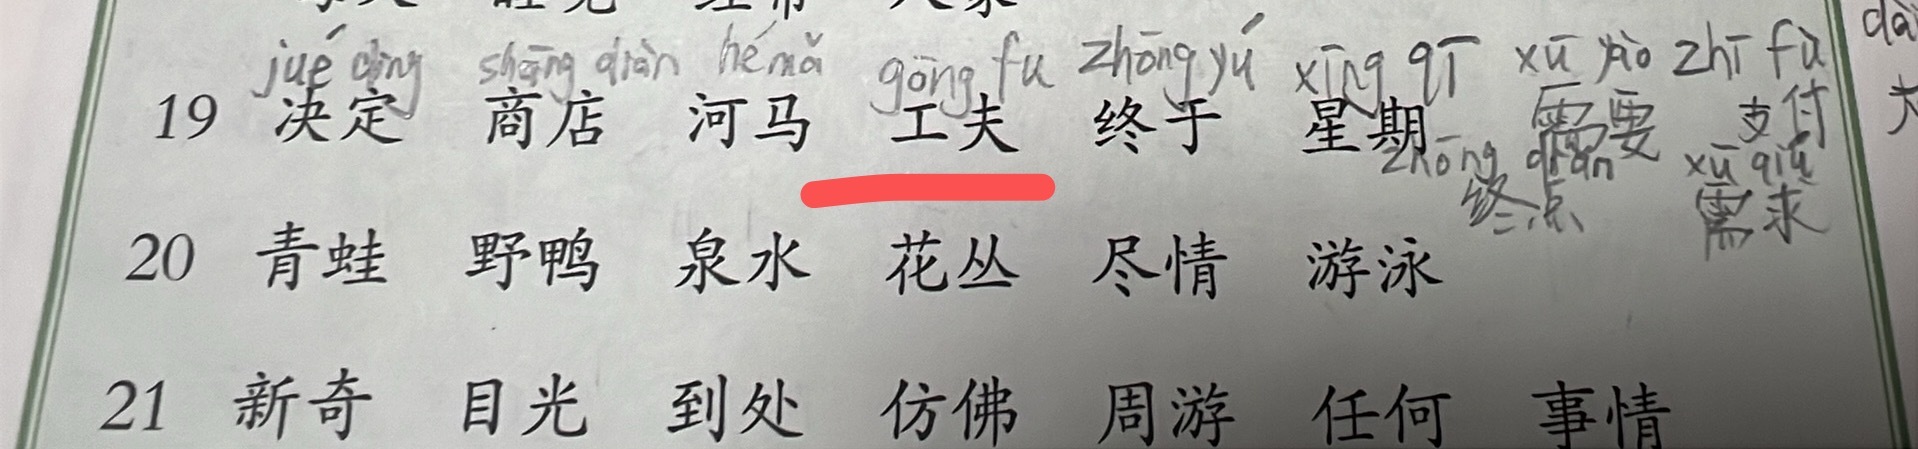 jué dìng shāng diàn hé mǎ gōng fu zhōng yú xīng qī xū yào zhī fù
19 决定 商店 河马 工夫 终于 星期 需要 支付
zhōng diǎn xū qiú
终点 需求
20 青蛙 野鸭 泉水 花丛 尽情 游泳
21 新奇 目光 到处 仿佛 周游 任何 事情